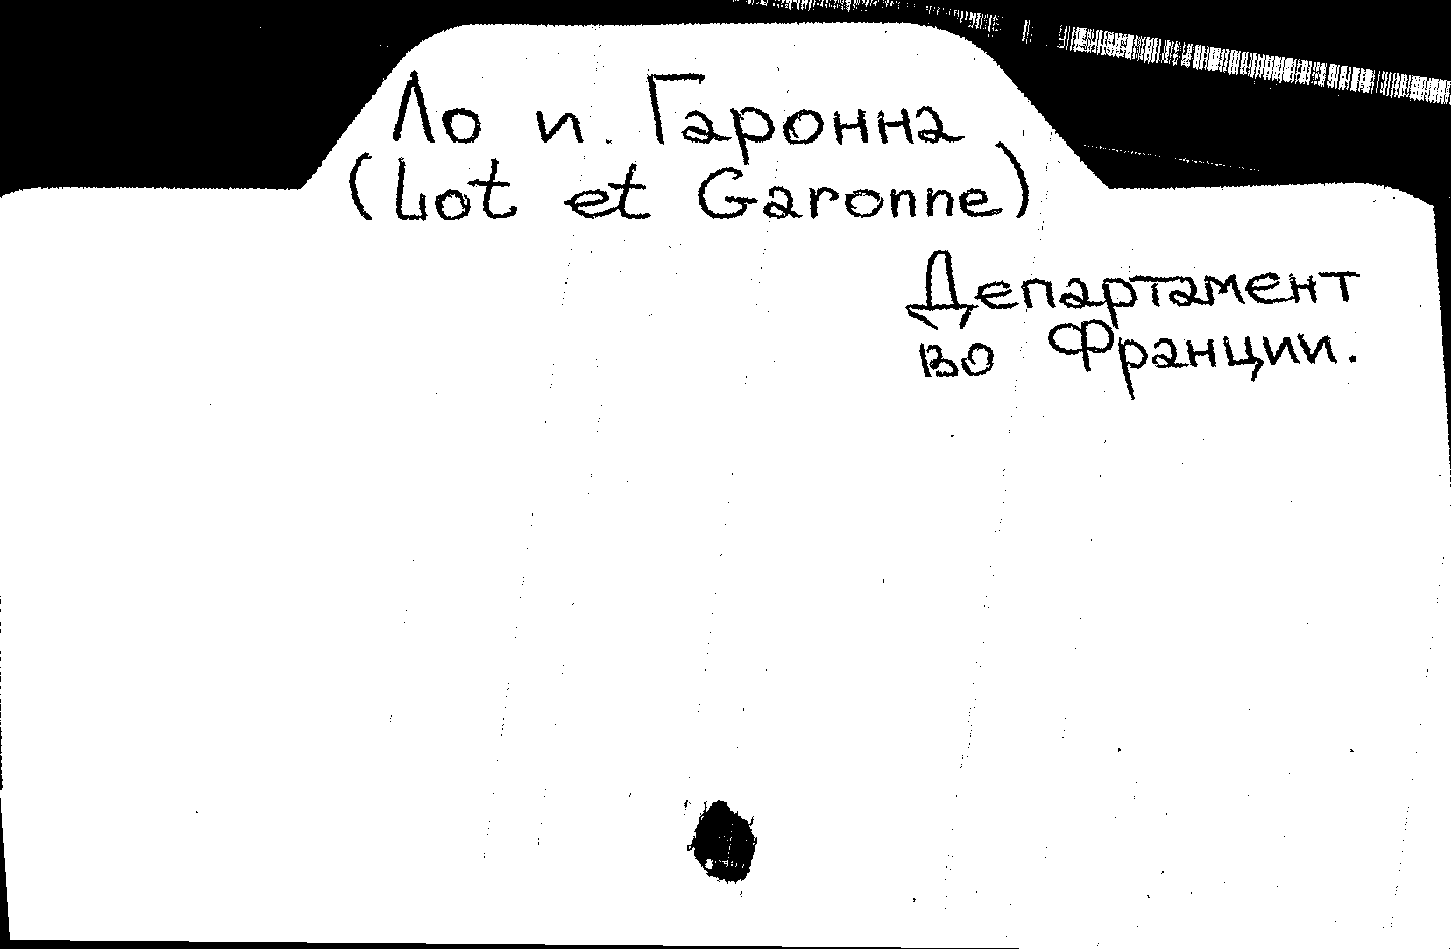 Ло и. Гаронна
(Lot et Garonne)
Департамент
во Франции.